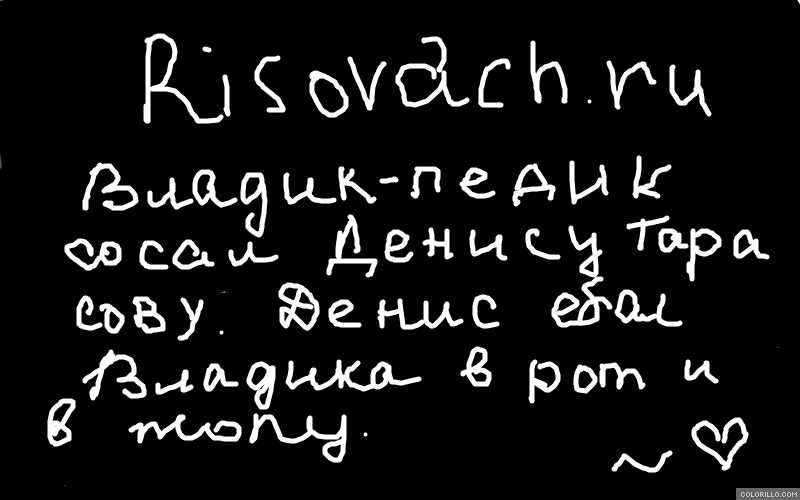 Risovach.ru
Владик-педик
сосал Денису Тара
сову. Денис ебал
Владика в рот и
в жопу.
~ ♡
COLORILLO.COM